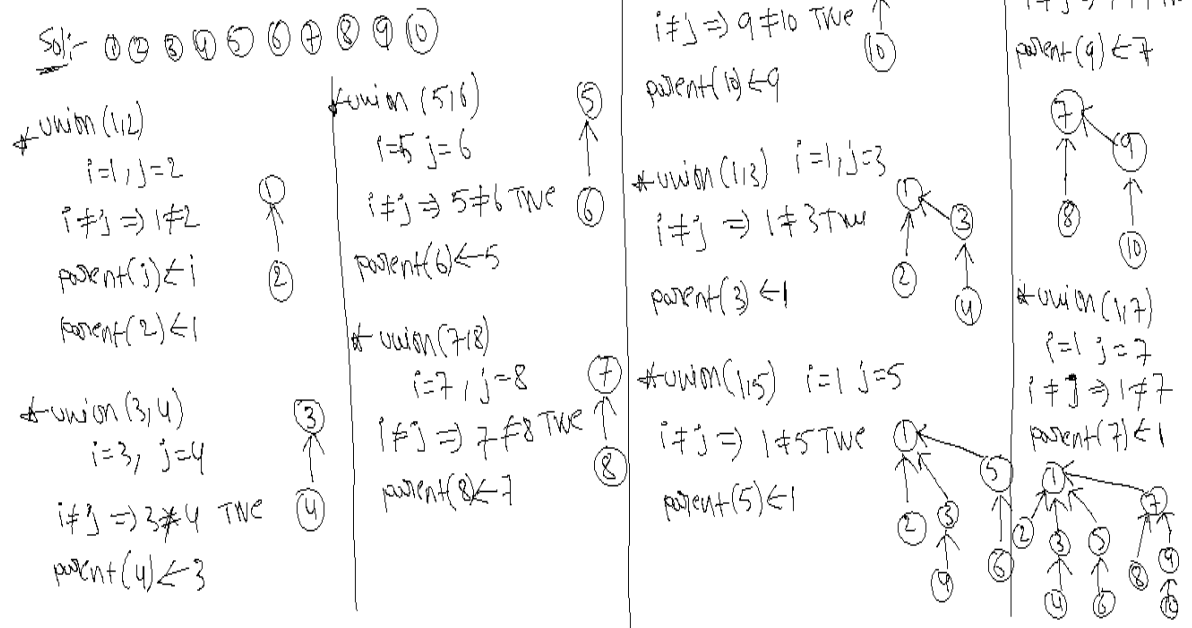 Sol:- 1 2 3 4 5 6 7 8 9 10
* union (1,2)
i=1, j=2
i≠j => 1≠2
parent(j)←i
parent(2)←1
1
2
* union (3,4)
i=3, j=4
i≠j => 3≠4 True
parent(4)←3
3
4
* union (5,6)
i=5 j=6
i≠j => 5≠6 True
parent(6)←5
5
6
* union (7,8)
i=7, j=8
i≠j => 7≠8 True
parent(8)←7
7
8
i≠j => 9≠10 True
parent(10)←9
10
* union (1,3) i=1, j=3
i≠j => 1≠3 True
parent(3)←1
1
3
2
4
* union (1,5) i=1 j=5
i≠j => 1≠5 True
parent(5)←1
1
5
2 3
4 6
parent(9)←7
7
9
8
10
* union (1,7)
i=1 j=7
i≠j => 1≠7
parent(7)←1
1 7
2 3 5 8 9
4 6 10